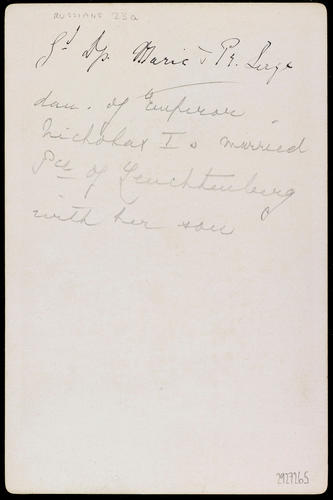 RUSSIANS 23a
Gd Dss Marie & Pr. Serge
dau. of Emperor
Nicholas I & married
Pce of Leuchtenberg
with her son
2927265